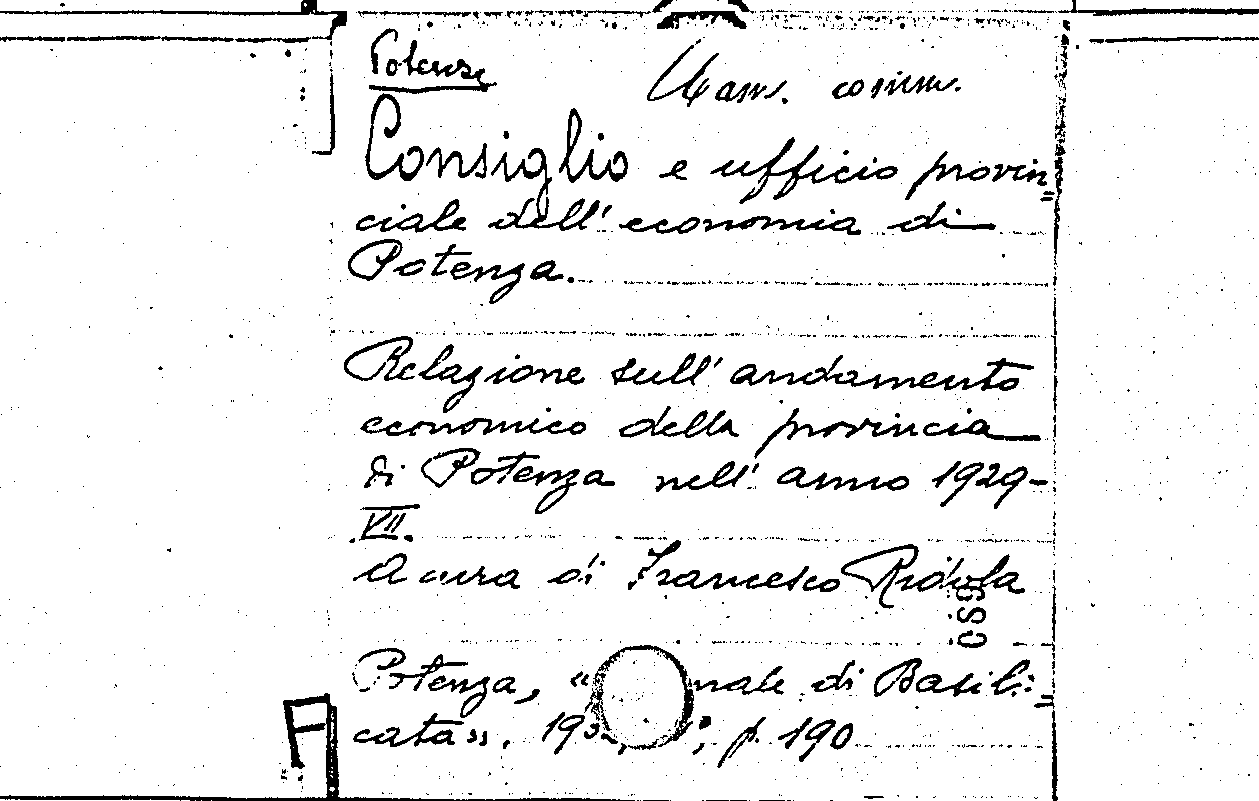 Potenza
Cam. comm.
Consiglio e ufficio provin=
ciale dell'economia di
Potenza.
Relazione sull'andamento
economico della provincia
di Potenza nell'anno 1929-
VII.
A cura di Francesco Ridola
CSS
Potenza, " nale di Basili=
cata ". 19 , p. 190